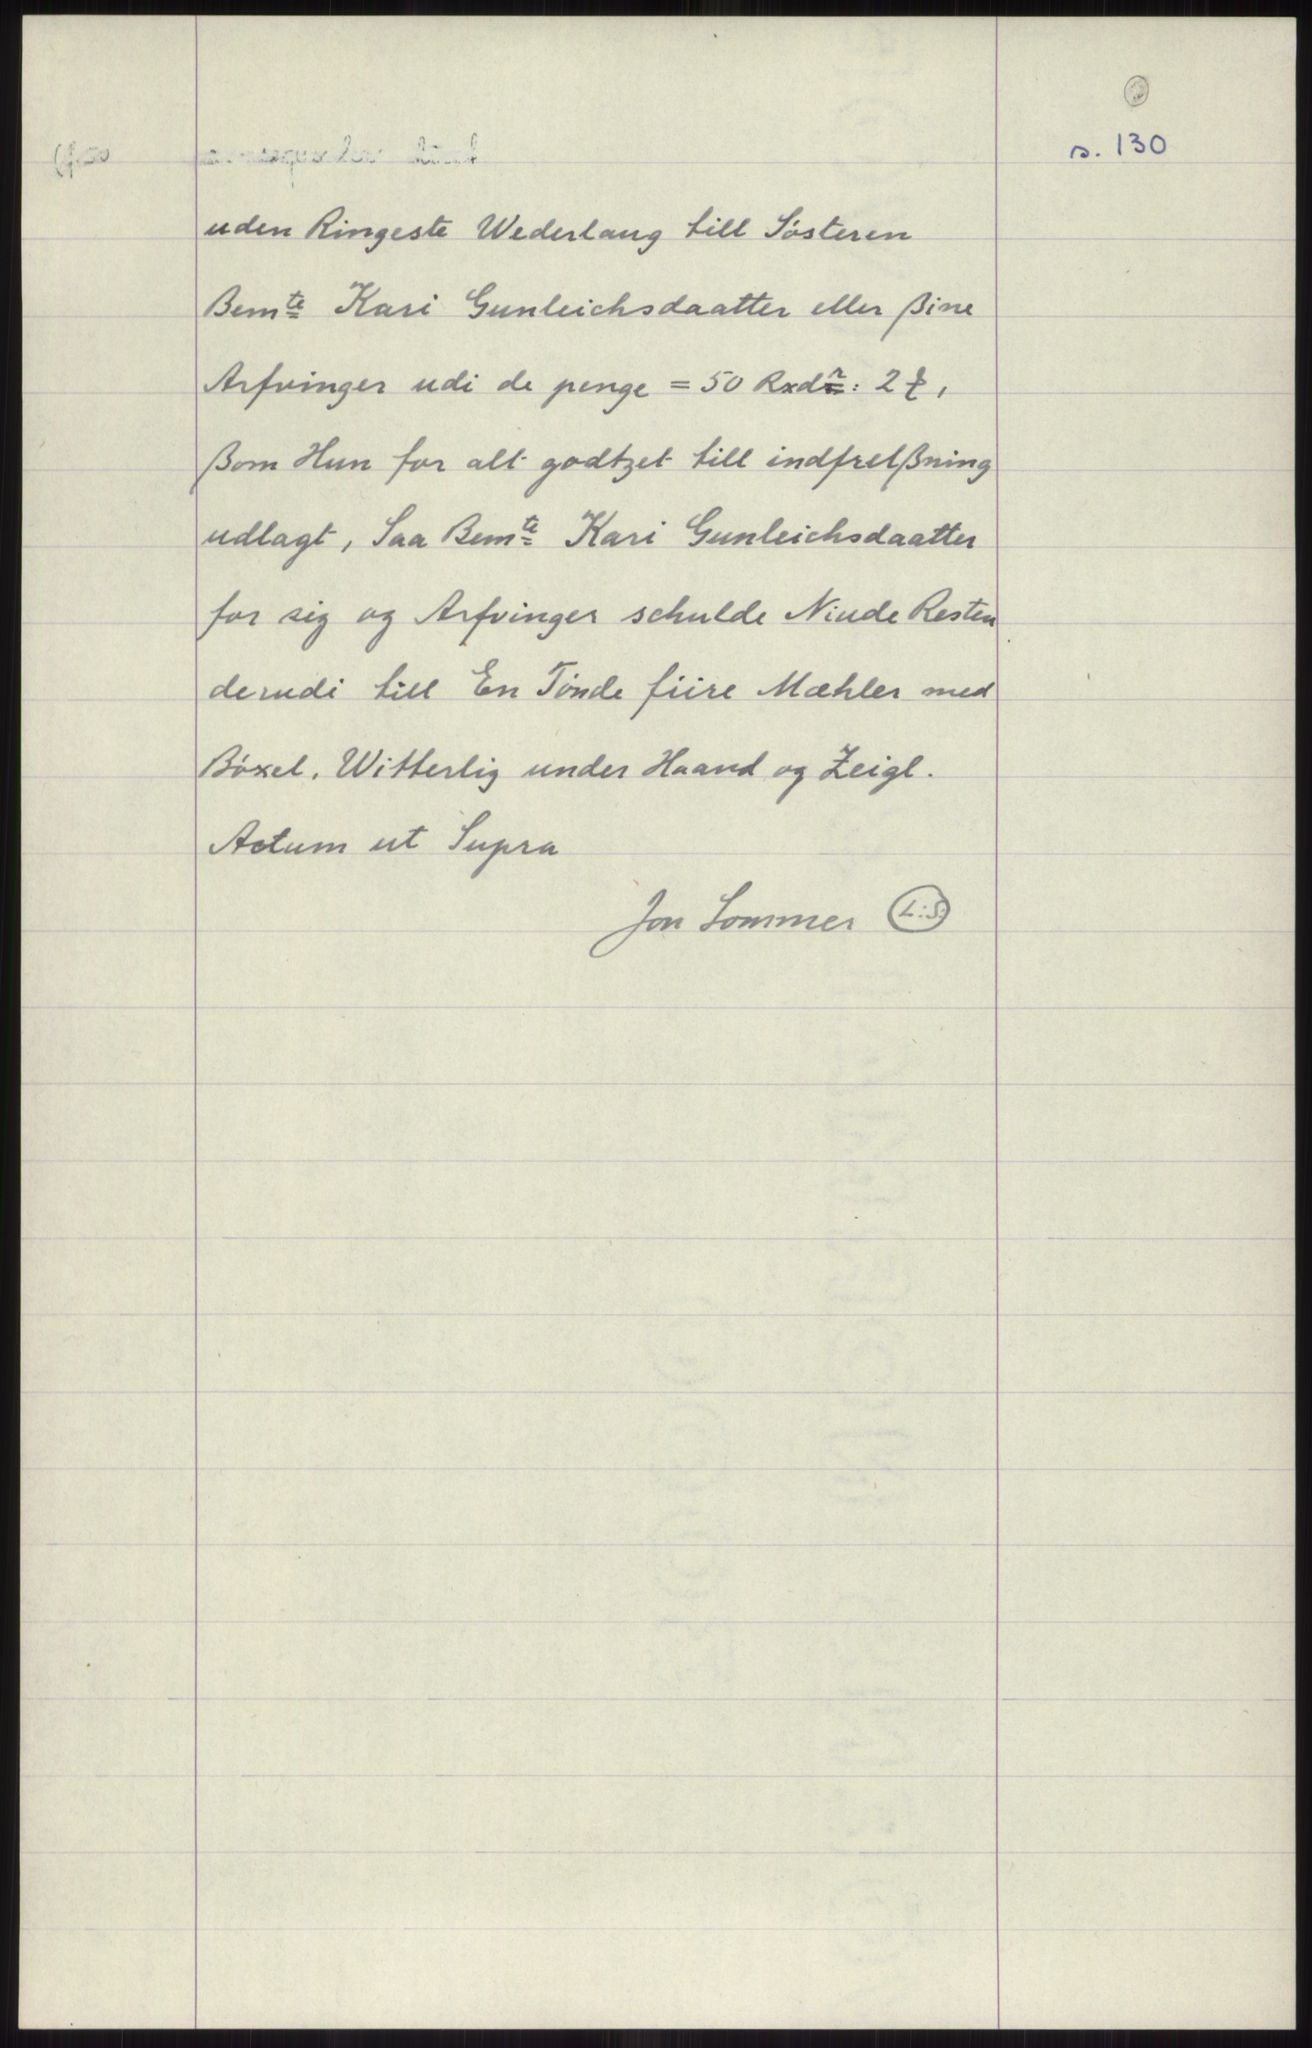 s. 130
uden Ringeste Wederlaug till Søsteren
Bemte Kari Gunleichsdaatter eller ßine
Arfvinger udi de penge = 50 Rxdr: 2 ₰,
ßom Hun for alt godtzet till indfrelßning
udlagt, Saa Bemte Kari Gunleichsdaatter
for sig og Arfvinger schulde Niude Resten
derudi till En Tønde fiire Mæhler med
Bøxel. Witterlig under Haand og Zeigl.
Actum ut Supra
Jon Sommer L:S: